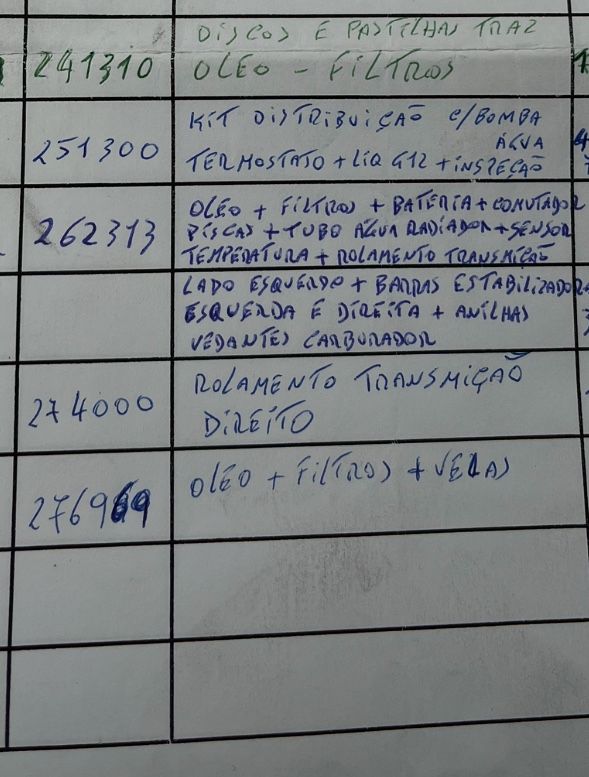 DISCOS E PASTILHAS TRAZ
241310 OLEO - FILTROS
KIT DISTRIBUIÇÃO C/BOMBA
ÁGUA
251300 TERMOSTATO + LIQ G12 + INSPEÇÃO
OLEO + FILTROS + BATERIA + COMUTADOR
262313 PISCAS + TUBO ÁGUA RADIADOR + SENSOR
TEMPERATURA + ROLAMENTO TRANSMIÇÃO
LADO ESQUERDO + BARRAS ESTABILIZADOR
ESQUERDA E DIREITA + ANILHAS
VEDANTES CARBURADOR
ROLAMENTO TRANSMIÇÃO
274000 DIREITO
OLEO + FILTROS + VELAS